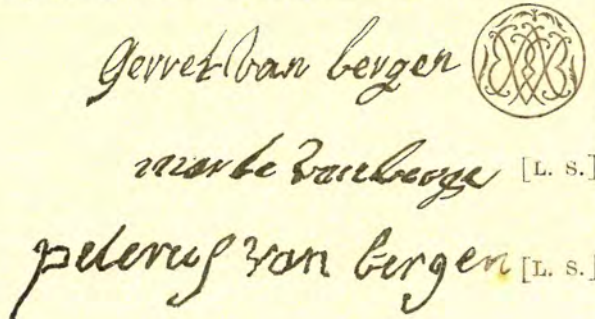 Gerret Van bergen
marte Van berge [L. S.]
peterus Van bergen [L. S.]